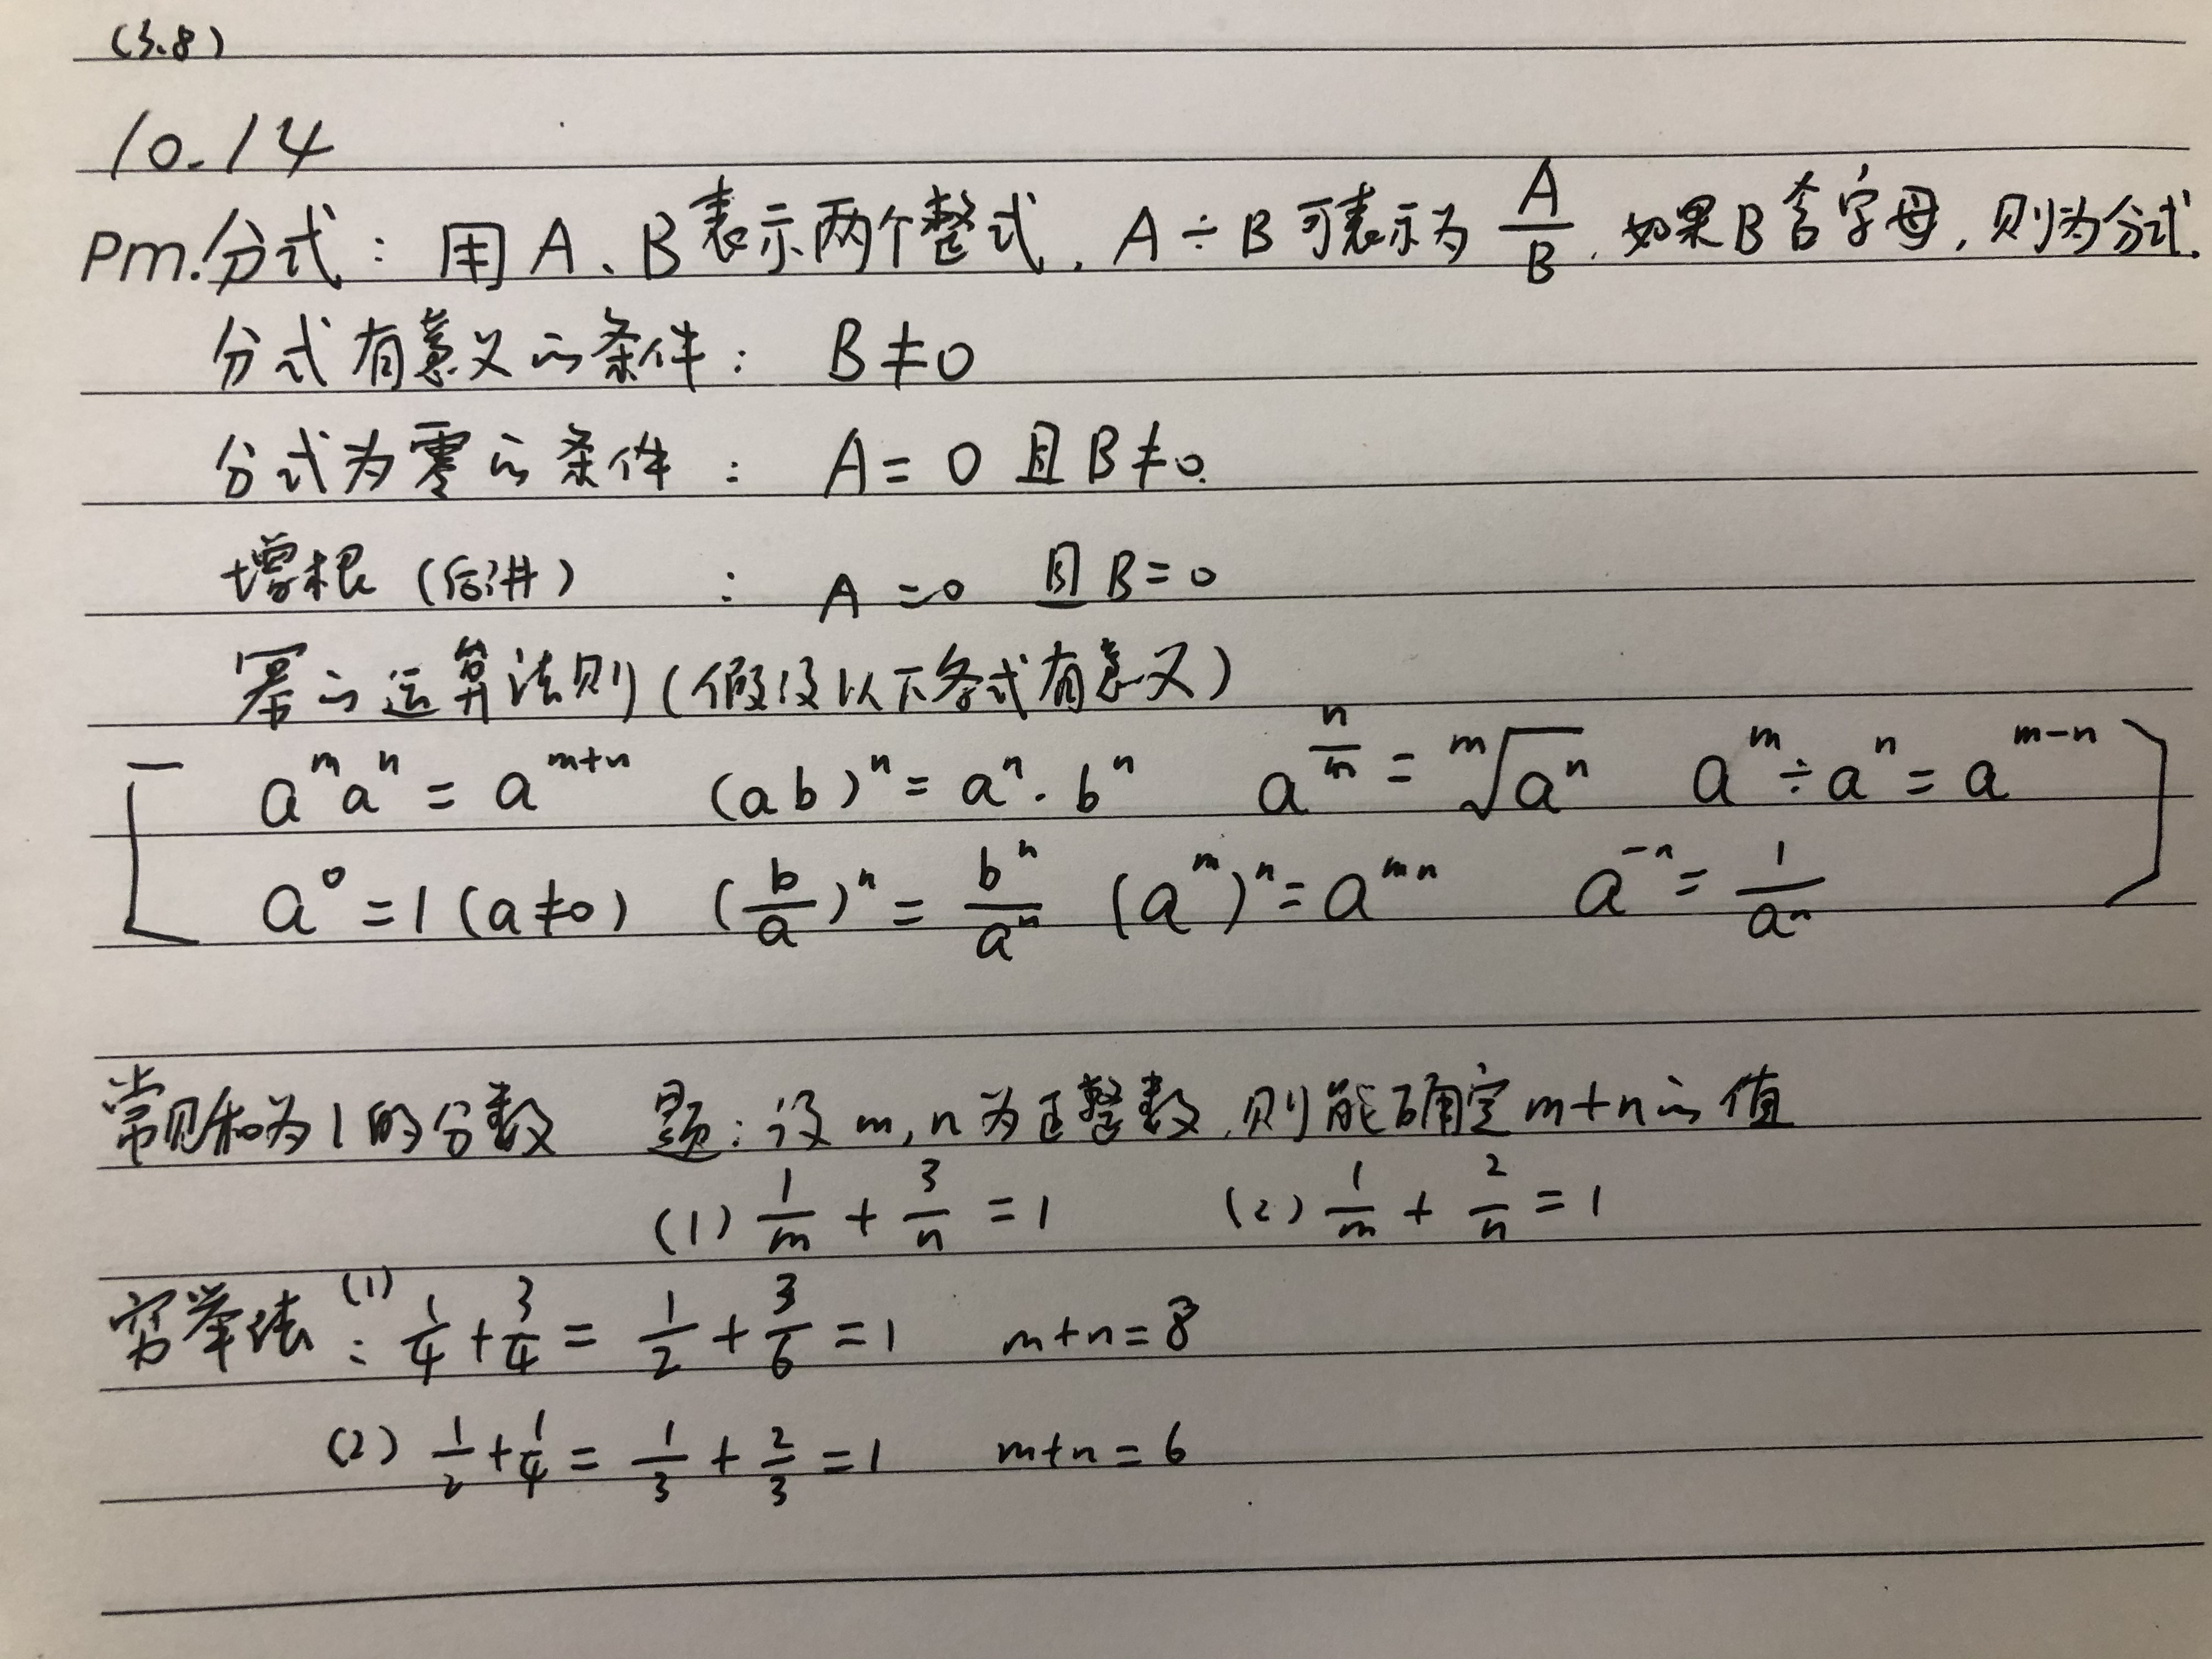 (3.8)
10.14
Pm.分式：用A、B表示两个整式，A÷B可表示为A/B，如果B含字母，则为分式.
分式有意义的条件：B≠0
分式为零的条件：A=0且B≠0.
增根（后讲）：A=0 且B=0
幂的运算法则（假设以下各式有意义）
a^m a^n = a^(m+n) (ab)^n = a^n · b^n a^(n/m) = ᵐ√(a^n) a^m ÷ a^n = a^(m-n)
a^0 = 1 (a≠0) (b/a)^n = b^n/a^n (a^m)^n = a^(mn) a^(-n) = 1/a^n
常见和为1的分数 题：设m,n为正整数,则能确定m+n的值
(1) 1/m + 3/n = 1 (2) 1/m + 2/n = 1
穷举法：(1) 1/4 + 3/4 = 1/2 + 3/6 = 1 m+n=8
(2) 1/2 + 1/4 = 1/3 + 2/3 = 1 m+n=6